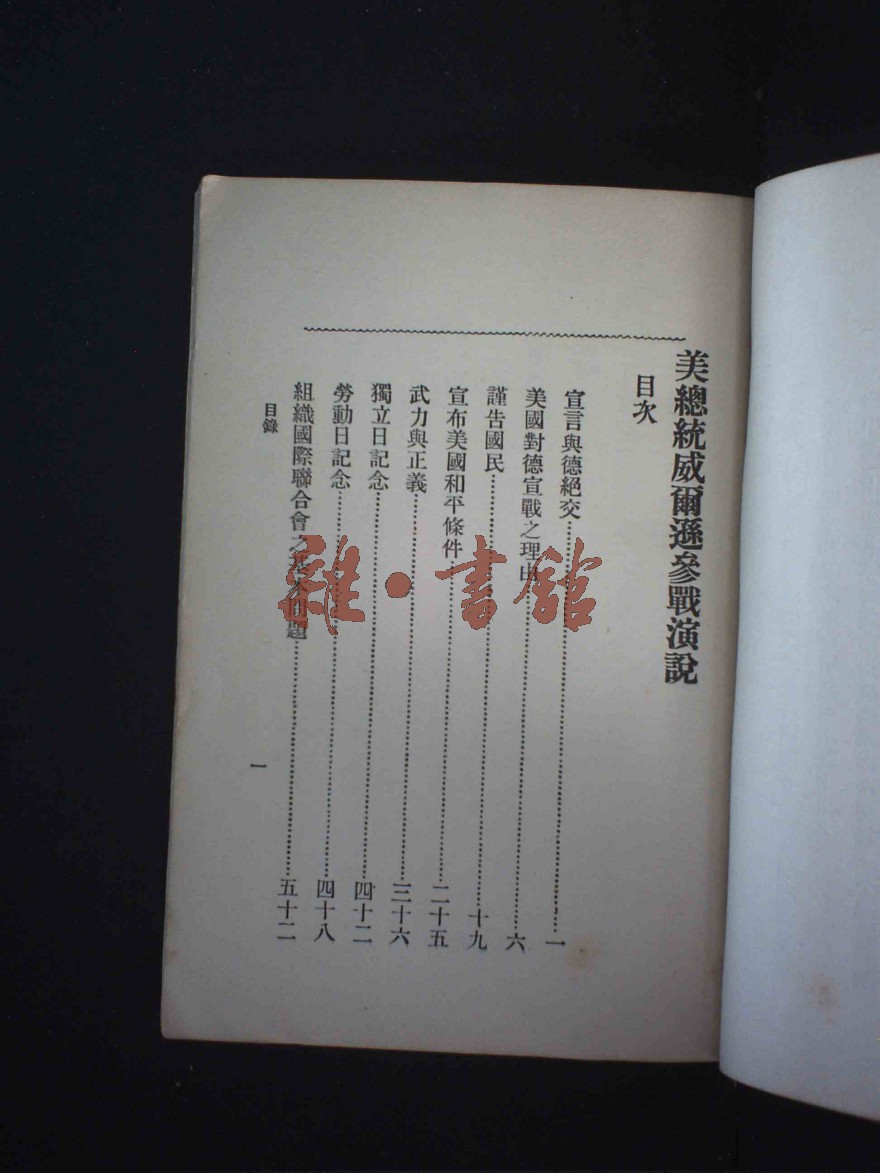 美總統威爾遜參戰演說
目次
宣言與德絕交⋯⋯一
美國對德宣戰之理由⋯⋯六
謹告國民⋯⋯十九
宣布美國和平條件⋯⋯二十五
武力與正義⋯⋯三十六
獨立日記念⋯⋯四十二
勞動日記念⋯⋯四十八
組織國際聯合會之基本問題⋯⋯五十二
目錄
一
雜·書館